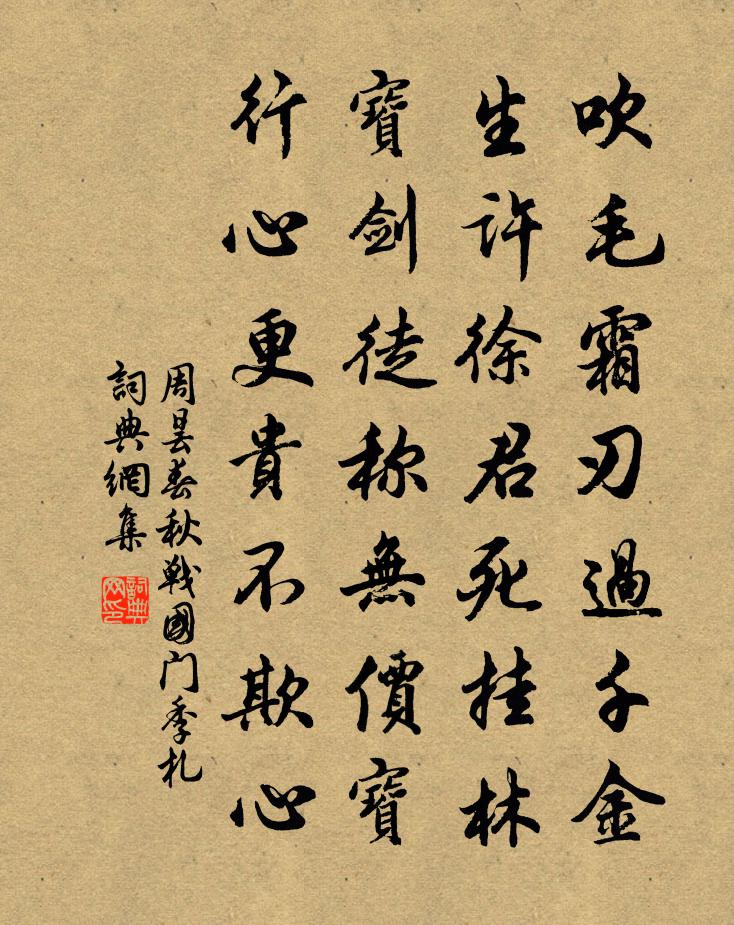 吹毛霜刃過千金
生許徐君死挂林
寶劍徒称無價寶
行心更貴不欺心
周昙春秋戦國门季札
詞典網集
詞典网印